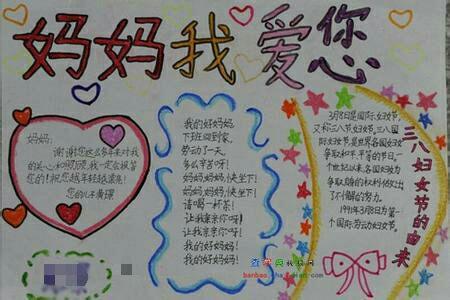 妈妈我爱您
妈妈:
谢谢您这么多年来对我
的关心和照顾,我一定会报答
您的!祝您越年轻越漂亮!
您的儿子
我的好妈妈,
下班回到家,
劳动了一天,
多么辛苦呀!
妈妈妈妈快坐下!
妈妈妈妈快坐下!
请喝一杯茶!
让我亲亲你呀!
让我亲亲你呀!
我的好妈妈!
我的好妈妈!
3月8日是国际妇女节,
又称三八节妇女节,三八国
际妇女节是世界各国妇女
争取和平、平等的节日。一
个世纪以来,各国妇女为
争取她的权利作出
了不懈的努力。
1911年3月8日为第一
个国际劳动妇女节。
三八妇女节的由来